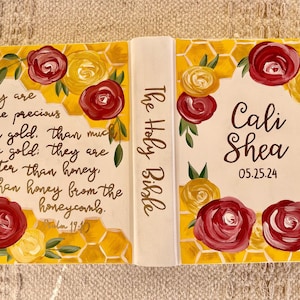 ey are
e precious
gold. than much
gold. they are
ter than honey,
han honey from the
honeycomb.
Psalm 19:10
The Holy Bible
Cali
Shea
05.25.24